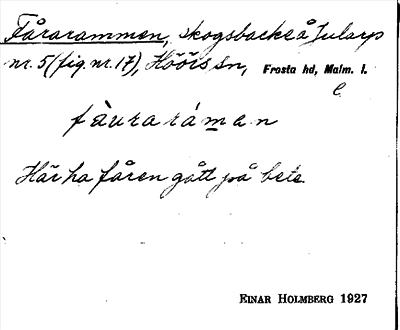 Fårarammen, skogsbacke å Jularp
nr. 5 (fig. nr. 17), Höörs sn, Frosta hd, Malm. l.
e.
fàuraráman
Här ha fåren gått på bete.
EINAR HOLMBERG 1927